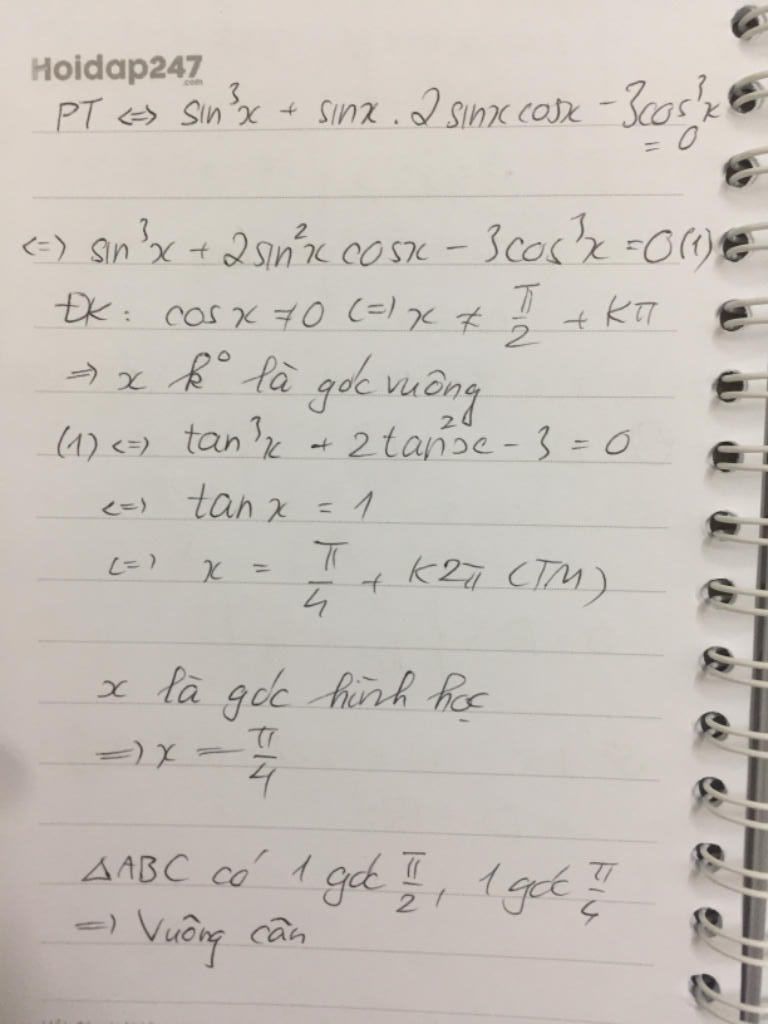 Hoidap247
.com
PT <=> sin³x + sinx . 2sinxcosx - 3cos³x
= 0
<=> sin³x + 2sin²x cosx - 3cos³x = 0 (1)
ĐK : cosx ≠ 0 <=> x ≠ π/2 + Kπ
=> x k° là góc vuông
(1) <=> tan³x + 2tan²x - 3 = 0
<=> tanx = 1
<=> x = π/4 + K2π (TM)
x là góc hình học
=> x = π/4
△ABC có 1 góc π/2, 1 góc π/4
=> Vuông cân